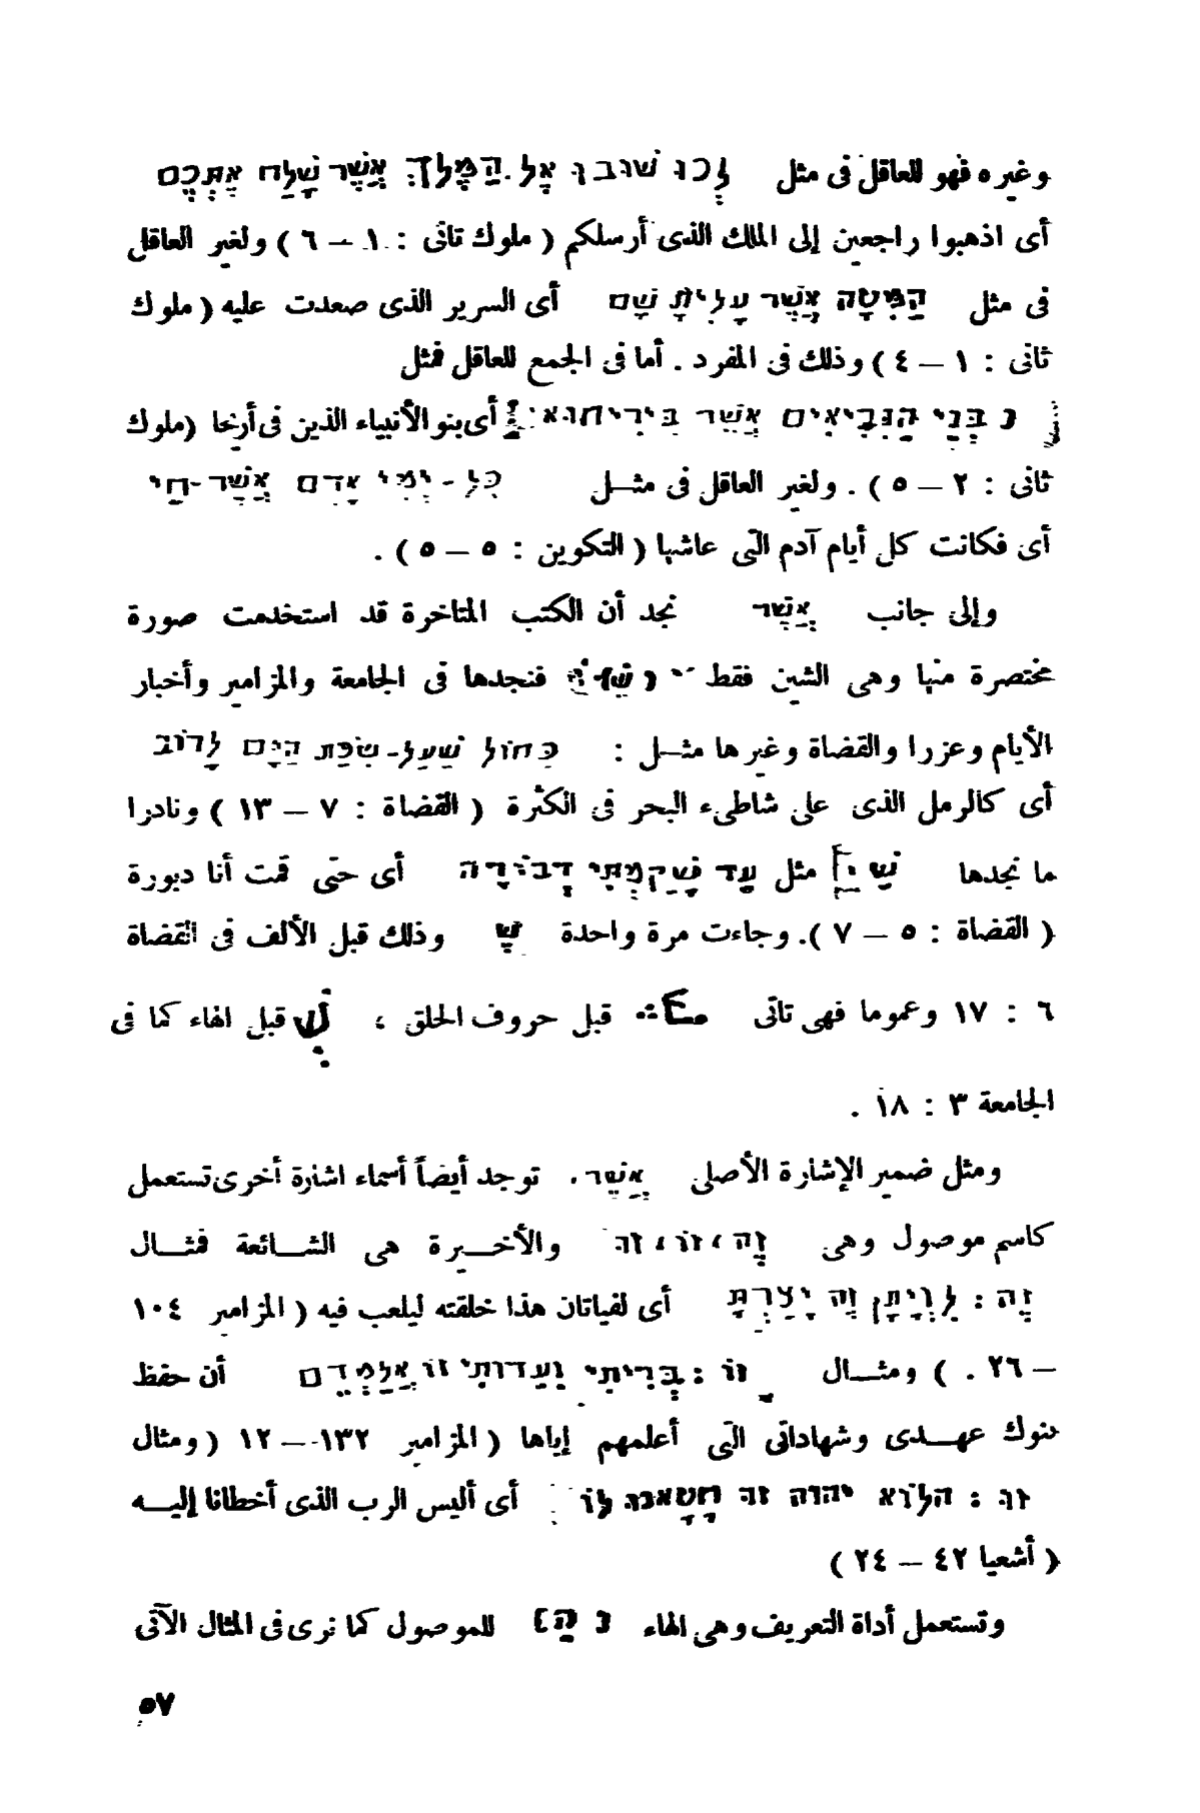 وغيره فهو للعاقل فى مثل לְכוּ שׁוּבוּ אֶל הַמֶּלֶךְ אֲשֶׁר שָׁלַח אֶתְכֶם
أى اذهبوا راجعين إلى الملك الذى أرسلكم ( ملوك ثانى : ١ – ٦ ) ولغير العاقل
فى مثل הַמִּטָּה אֲשֶׁר עָלִיתָ שָּׁם أى السرير الذى صعدت عليه ( ملوك
ثانى : ١ – ٤ ) وذلك فى المفرد . أما فى الجمع للعاقل فمثل
בְּנֵי הַנְּבִיאִים אֲשֶׁר בִּירִיחוֹ أى بنو الأنبياء الذين فى أريحا (ملوك
ثانى : ٢ – ٥ ) . ولغير العاقل فى مثــل כָּל - יְמֵי אָדָם אֲשֶׁר - חַי
أى فكانت كل أيام آدم التى عاشها ( التكوين : ٥ – ٥ ) .
وإلى جانب אֲשֶׁר نجد أن الكتب المتاخرة قد استخدمت صورة
مختصرة منها وهى الشين فقط فنجدها فى الجامعة والمزامير وأخبار
الأيام وعزرا والقضاة وغيرها مثــل : כַּחוֹל שֶׁעַל - שְׂפַת הַיָּם לָרוֹב
أى كالرمل الذى على شاطىء البحر فى الكثرة ( القضاة : ٧ – ١٣ ) ونادرا
ما نجدها שַׁ مثل עַד שַׁקַּמְתִּי דְּבוֹרָה أى حتى قمت أنا دبورة
( القضاة : ٥ – ٧ ). وجاءت مرة واحدة שָׁ وذلك قبل الألف فى القضاة
٦ : ١٧ وعموما فهى تاتى قبل حروف الحلق ، שְׁ قبل الهاء كما فى
الجامعة ٣ : ١٨ .
ومثل ضمير الإشارة الأصلى אֲשֶׁר . توجد أيضاً أسماء اشارة أخرى تستعمل
كاسم موصول وهى זֶה ، זוֹ ، זוּ والأخــيرة هى الشــائعة فمثــال
זֶה : לִוְיָתָן זֶה יָצַרְתָּ أى لفياتان هذا خلقته ليلعب فيه ( المزامير ١٠٤
– ٢٦ . ) ومثــال זוֹ : בְּרִיתִי וְעֵדֹתִי זוֹ אֲלַמְּדֵם أن حفظ
بنوك عهــدى وشهاداتى التى أعلمهم إياها ( المزامير ١٣٢ – ١٢ ( ومثال
זוּ : הֲלוֹא יהוה זוּ חָטָאנוּ לוֹ أى أليس الرب الذى أخطانا إليــه
( أشعيا ٤٢ – ٢٤ )
وتستعمل أداة التعريف وهى الهاء [ הַ ] للموصول كما نرى فى المثال الآتى
٥٧